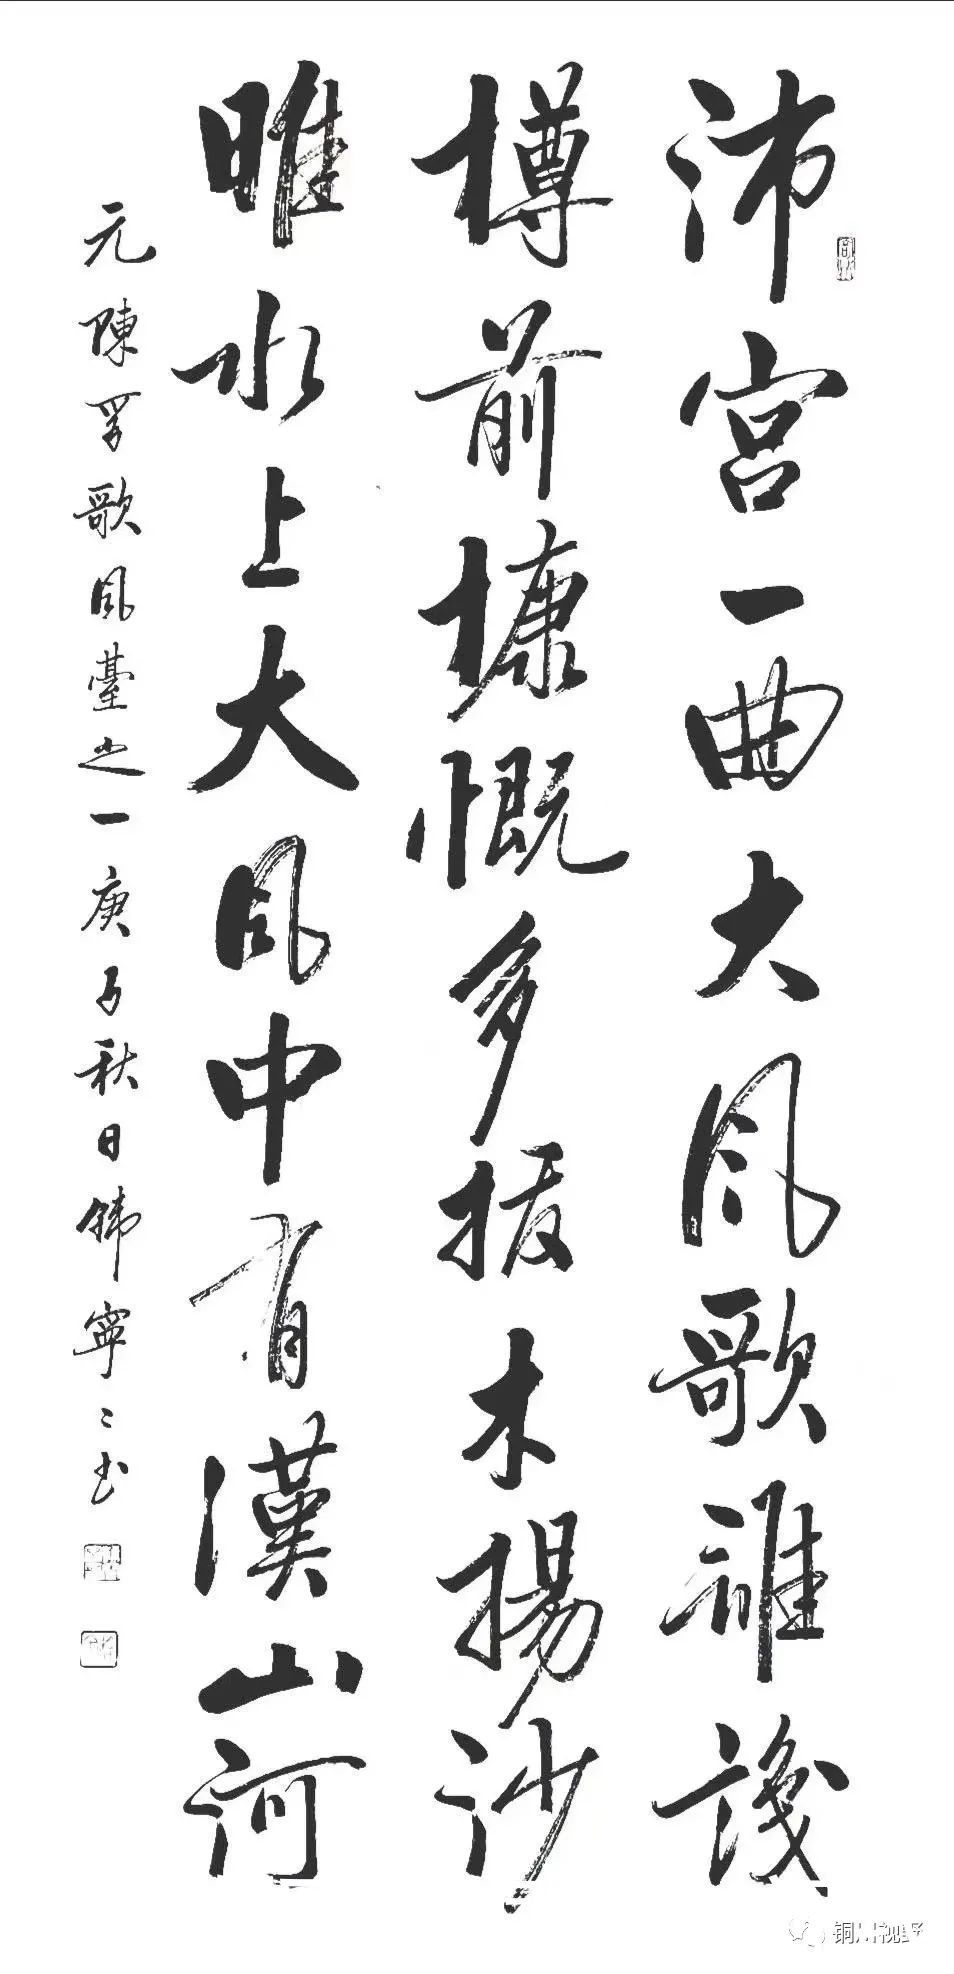 沛宮一曲大風歌誰識
樽前慷慨多拔木揚沙
睢水上大風中有漢山河
元陳孚歌風臺之一庚子秋日韓寧〻书
铜川视野